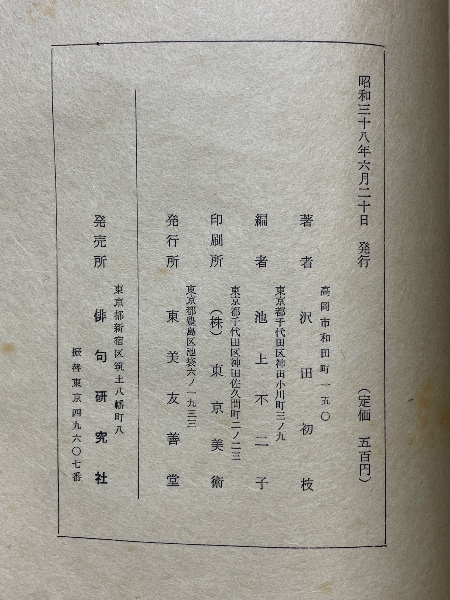 昭和三十八年六月二十日 発行 (定価 五百円)
高岡市和田町一五〇
著者 沢田初枝
東京都千代田区神田小川町三ノ九
編者 池上不二子
東京都千代田区神田佐久間町二ノ二三
印刷所 (株)東京美術
東京都豊島区池袋六ノ一九三三
発行所 東美友善堂
東京都新宿区筑土八幡町八
発売所 俳句研究社
振替東京四九六〇七番